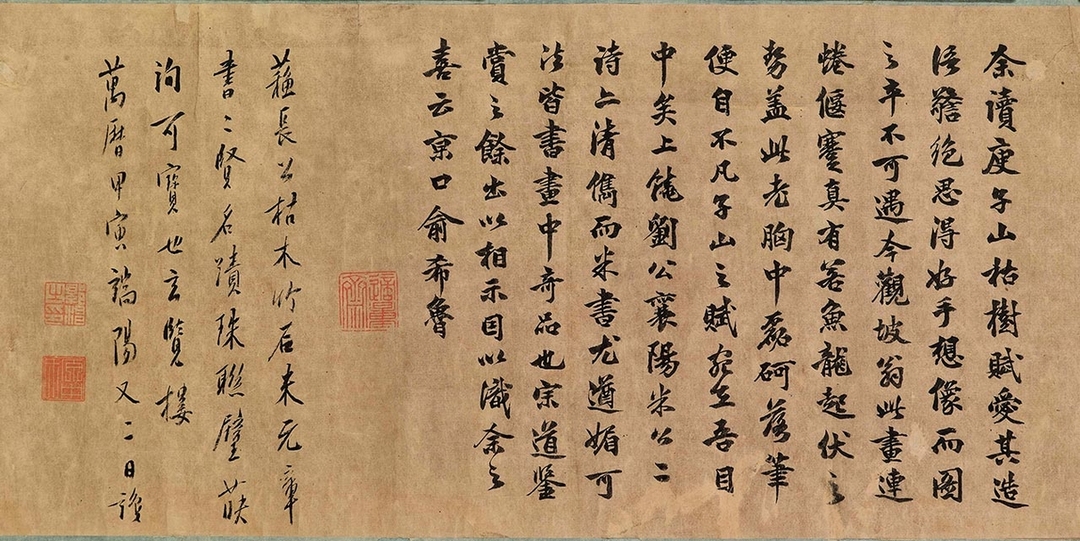 余讀庾子山枯樹賦愛其造
語警絶思得好手想像而圖
之卒不可遇今觀坡翁此畫連
蜷偃蹇真有若魚龍起伏之
勢蓋此老胸中磊砢落筆
便自不凡子山之賦宛在吾目
中矣上饒劉公襄陽米公二
詩亦清儁而米書尤遒媚可
法皆書畫中奇品也宗道鑒
賞之餘出以相示因以識余之
喜云京口俞希魯
蘓長公枯木竹石米元章
書二賢名蹟珠聯璧
詢可寶也玄覽樓
萬曆甲寅端陽又二日